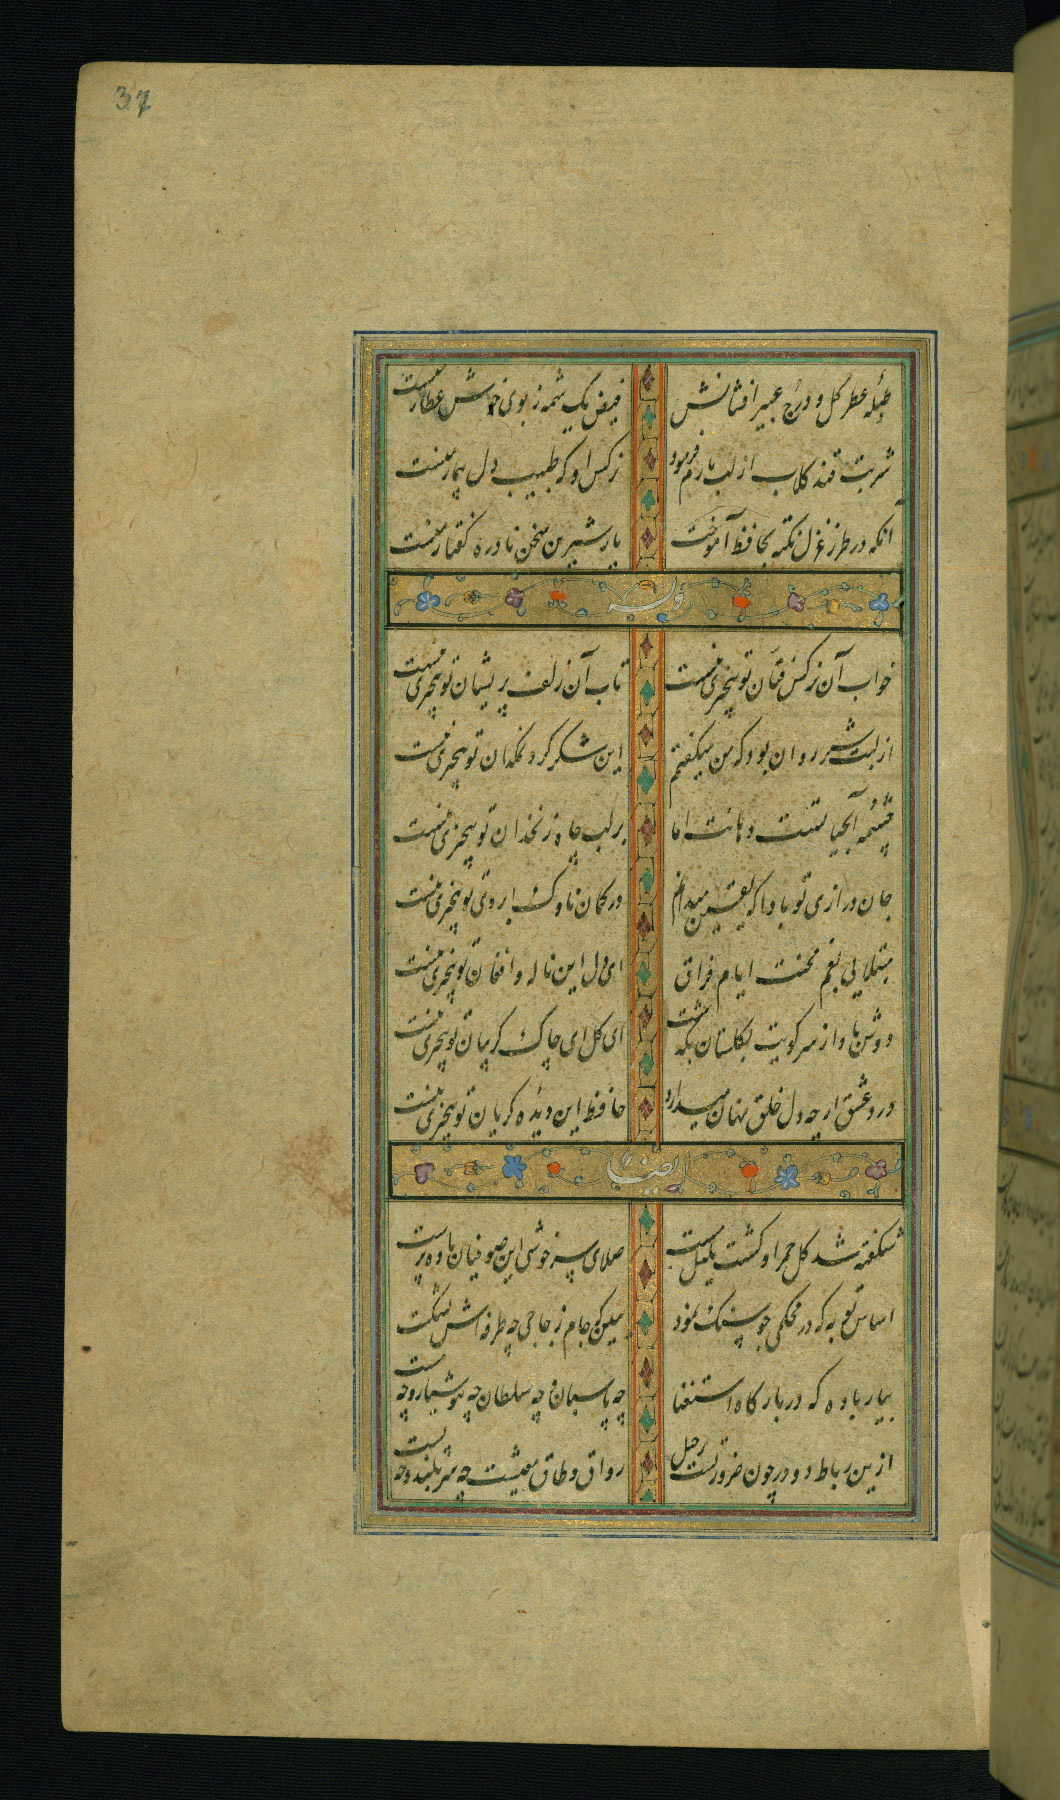 37
طبلهٔ عطر گل و درج عبیر افشانش
فیض یک شمه ز بوی خوش عطار منست
شربت قند کلاب از لب یارم فرمود
نرکس او که طبیب دل بیمار منست
آنکه در طرز غزل نکته بحافظ آموخت
یار شیرین سخن نادره کفتار منست
وله
خواب آن نرکس فتان تو بیچیزی نیست
تاب آن زلف پریشان تو بیچیزی نیست
از لبت شیر روان بود که من میکفتم
این شکر کرد نمکدان تو بیچیزی نیست
چشمهٔ آبحیاتست دهانت اما
بر لب چاه زنخدان تو بیچیزی نیست
جان درازی تو بادا که یقین میدانم
در کمان ناوک ابروی تو بیچیزی نیست
مبتلایی بغم محنت ایام فراق
ای دل این ناله و افغان تو بیچیزی نیست
دوش باد از سر کویت بکلستان بگذشت
ای کل این چاک کریبان تو بیچیزی نیست
درد عشق ار چه دل خلق نهان میدارد
حافظ این دیدهٔ کریان تو بیچیزی نیست
ایضا
شکفته شد کل حمرا و کشت بلبل مست
صلای سرخوشی ای صوفیان باده پرست
اساس توبه که در محکمی چو سنک نمود
ببین که جام زجاجی چه طرفه اش بشکست
بیار باده که در بارکاه استغنا
چه پاسبان چه سلطان چه هوشیار و چه مست
ازین رباط دو در چون ضرورتست رحیل
رواق و طاق معیشت چه سربلند و چه پست